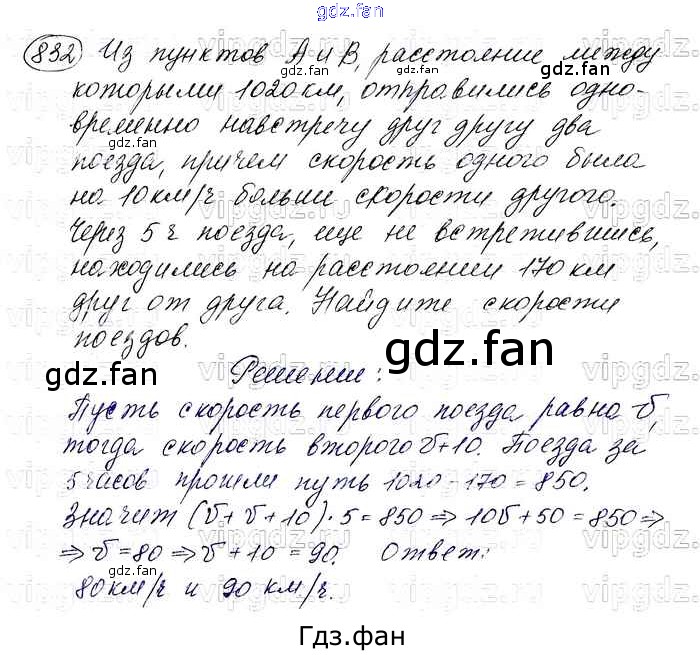 gdz.fan
832 Из пунктов А и В, расстояние между
которыми 1020 км, отправились одно-
временно навстречу друг другу два
поезда, причем скорость одного была
на 10 км/ч больше скорости другого.
Через 5 ч поезда, еще не встретившись,
находились на расстоянии 170 км
друг от друга. Найдите скорости
поездов.
gdz.fan
gdz.fan
Решение:
Пусть скорость первого поезда равна v,
тогда скорость второго v+10. Поезда за
5 часов прошли путь 1020-170=850.
Значит (v+v+10)·5=850⇒10v+50=850⇒
⇒v=80⇒v+10=90. Ответ:
80 км/ч и 90 км/ч.
Гдз.фан